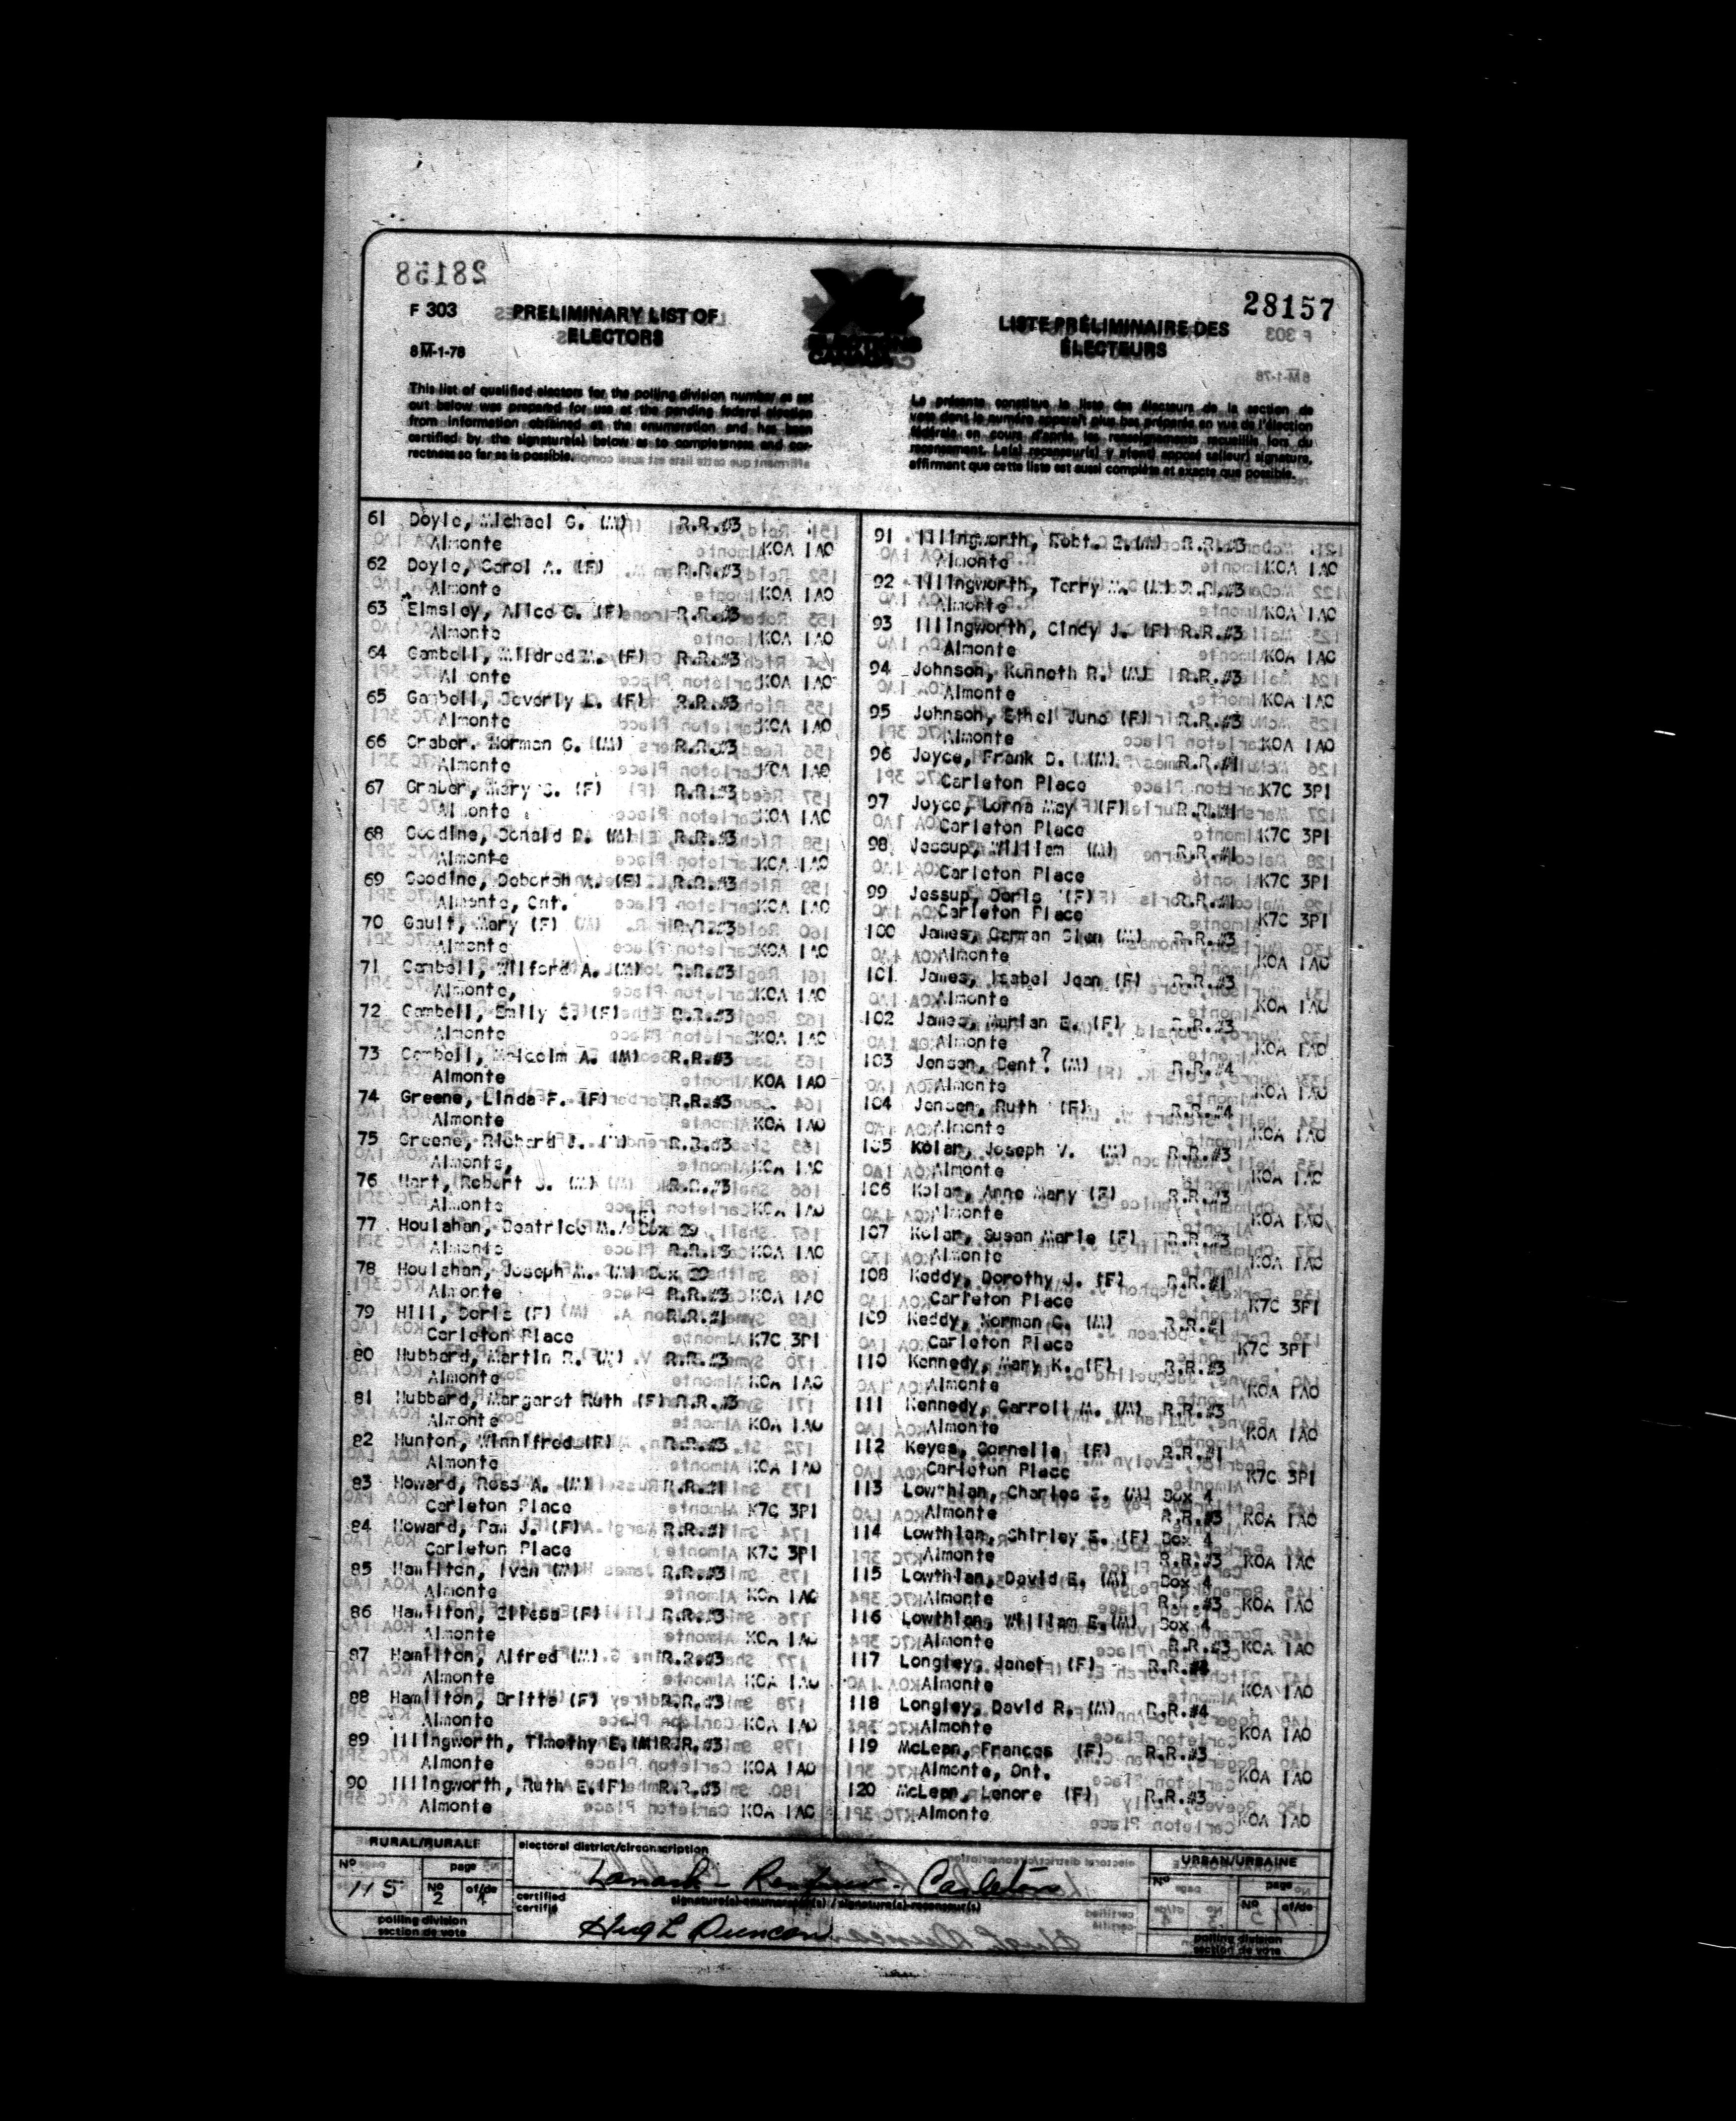 28157
F 303
PRELIMINARY LIST OF
ELECTORS
8M-1-78
ELECTIONS
CANADA
LISTE PRÉLIMINAIRE DES
ÉLECTEURS
This list of qualified electors for the polling division number as set
out below was prepared for use at the pending federal election
from information obtained at the enumeration and has been
certified by the signature(s) below as to completeness and cor-
rectness so far as is possible.
La présente constitue la liste des électeurs de la section de
vote dont le numéro apparaît plus bas préparée en vue de l'élection
fédérale en cours d'après les renseignements recueillis lors du
recensement. Le(s) recenseur(s) y a(ont) apposé sa(leur) signature,
affirmant que cette liste est aussi complète et exacte que possible.
61 Doyle, Michael G. (M) R.R.#3
Almonte K0A 1A0
62 Doyle, Carol A. (F) R.R.#3
Almonte K0A 1A0
63 Elmsley, Alice G. (F) R.R.#3
Almonte K0A 1A0
64 Gambell, Mildred M. (F) R.R.#3
Almonte K0A 1A0
65 Gambell, Beverly L. (F) R.R.#3
Almonte K0A 1A0
66 Graber, Norman G. (M) R.R.#3
Almonte K0A 1A0
67 Graber, Mary (F) R.R.#3
Almonte K0A 1A0
68 Goodine, Donald (M) R.R.#3
Almonte K0A 1A0
69 Goodine, Deborah (F) R.R.#3
Almonte, Ont. K0A 1A0
70 Gault, Mary (F) R.R.#3
Almonte K0A 1A0
71 Gambell, Wilford A. (M) R.R.#3
Almonte, K0A 1A0
72 Gambell, Emily (F) R.R.#3
Almonte K0A 1A0
73 Gambell, Malcolm A. (M) R.R.#3
Almonte K0A 1A0
74 Greene, Linda F. (F) R.R.#3
Almonte K0A 1A0
75 Greene, Richard (M) R.R.#3
Almonte, K0A 1A0
76 Hart, Robert J. (M) R.R.#3
Almonte K0A 1A0
77 Houlahan, Beatrice M. (F) Box 29
Almonte R.R.#3 K0A 1A0
78 Houlahan, Joseph M. (M) Box 29
Almonte R.R.#3 K0A 1A0
79 Hill, Doris (F) R.R.#1
Carleton Place K7C 3P1
80 Hubbard, Martin R. (M) R.R.#3
Almonte K0A 1A0
81 Hubbard, Margaret Ruth (F) R.R.#3
Almonte K0A 1A0
82 Hunton, Winnifred (F) R.R.#3
Almonte K0A 1A0
83 Howard, Ross A. (M) R.R.#1
Carleton Place K7C 3P1
84 Howard, Pam J. (F) R.R.#1
Carleton Place K7C 3P1
85 Hamilton, Ivan (M) R.R.#3
Almonte K0A 1A0
86 Hamilton, (F) R.R.#3
Almonte K0A 1A0
87 Hamilton, Alfred (M) R.R.#3
Almonte K0A 1A0
88 Hamilton, Britta (F) R.R.#3
Almonte K0A 1A0
89 Illingworth, Timothy E. (M) R.R.#3
Almonte K0A 1A0
90 Illingworth, Ruth E. (F) R.R.#3
Almonte K0A 1A0
91 Illingworth, Robt. E. (M) R.R.#3
Almonte K0A 1A0
92 Illingworth, Terry (M) R.R.#3
Almonte K0A 1A0
93 Illingworth, Cindy J. (F) R.R.#3
Almonte K0A 1A0
94 Johnson, Kenneth R. (M) R.R.#3
Almonte K0A 1A0
95 Johnson, Ethel June (F) R.R.#3
Almonte K0A 1A0
96 Joyce, Frank D. (M) R.R.#1
Carleton Place K7C 3P1
97 Joyce, Lorna May (F) R.R.#1
Carleton Place K7C 3P1
98 Jessup, William (M) R.R.#1
Carleton Place K7C 3P1
99 Jessup, Doris (F) R.R.#1
Carleton Place K7C 3P1
100 James, Glen (M) R.R.#3
Almonte K0A 1A0
101 James, Isabel Jean (F) R.R.#3
Almonte K0A 1A0
102 James, E. (F) R.R.#3
Almonte K0A 1A0
103 Jensen, Bent? (M) R.R.#4
Almonte K0A 1A0
104 Jensen, Ruth (F) R.R.#4
Almonte K0A 1A0
105 Kolan, Joseph V. (M) R.R.#3
Almonte K0A 1A0
106 Kolan, Anne Mary (F) R.R.#3
Almonte K0A 1A0
107 Kolan, Susan Marie (F) R.R.#3
Almonte K0A 1A0
108 Keddy, Dorothy J. (F) R.R.#1
Carleton Place K7C 3P1
109 Keddy, Norman G. (M) R.R.#1
Carleton Place K7C 3P1
110 Kennedy, Mary K. (F) R.R.#3
Almonte K0A 1A0
111 Kennedy, Carroll M. (M) R.R.#3
Almonte K0A 1A0
112 Keyes, Cornelia (F) R.R.#1
Carleton Place K7C 3P1
113 Lowthian, Charles E. (M) Box 4
Almonte R.R.#3 K0A 1A0
114 Lowthian, Shirley E. (F) Box 4
Almonte R.R.#3 K0A 1A0
115 Lowthian, David E. (M) Box 4
Almonte R.R.#3 K0A 1A0
116 Lowthian, William E. (M) Box 4
Almonte R.R.#3 K0A 1A0
117 Longley, Janet (F) R.R.#4
Almonte K0A 1A0
118 Longley, David R. (M) R.R.#4
Almonte K0A 1A0
119 McLean, Frances (F) R.R.#3
Almonte, Ont. K0A 1A0
120 McLean, Lenore (F) R.R.#3
Almonte K0A 1A0
RURAL/RURALE
No 115
page
No 2 of/de 4
polling division
section de vote
electoral district/circonscription
Lanark - Renfrew - Carleton
certified
certifié
signature(s)-enumerator(s) / signature(s)-recenseur(s)
Hugh Duncan
URBAN/URBAINE
No
page
No of/de
polling division
section de vote